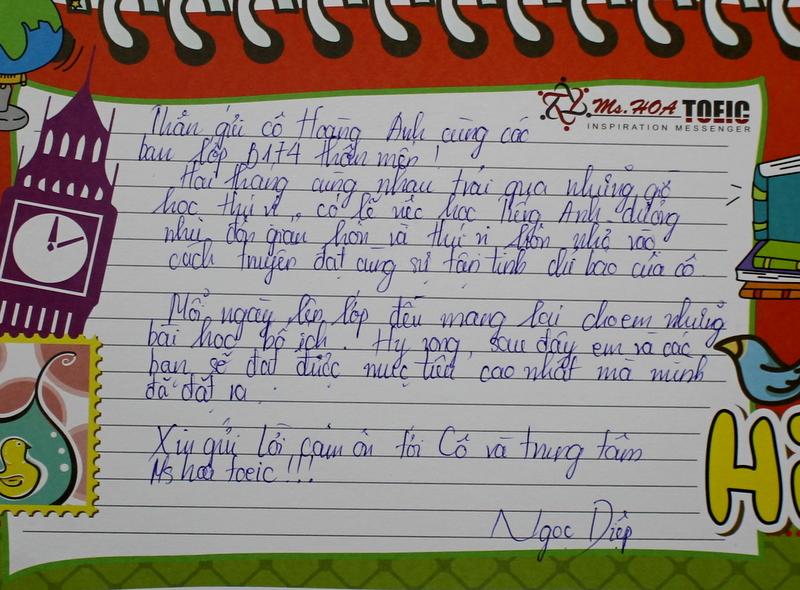 Ms. HOA TOEIC
INSPIRATION MESSENGER
Thân gửi cô Hoàng Anh cùng các
bạn lớp B174 thân mến !
Hai tháng cùng nhau trải qua những giờ
học thú vị, có lẽ việc học Tiếng Anh dường
như đơn giản hơn và thú vị hơn nhờ vào
cách truyền đạt cùng sự tận tình chỉ bảo của cô.
Mỗi ngày lên lớp đều mang lại cho em những
bài học bổ ích. Hy vọng, sau đây em và các
bạn sẽ đạt được mục tiêu cao nhất mà mình
đã đặt ra.
Xin gửi lời cảm ơn tới Cô và trung tâm
Ms hoa toeic !!!
Ngọc Diệp
Hi